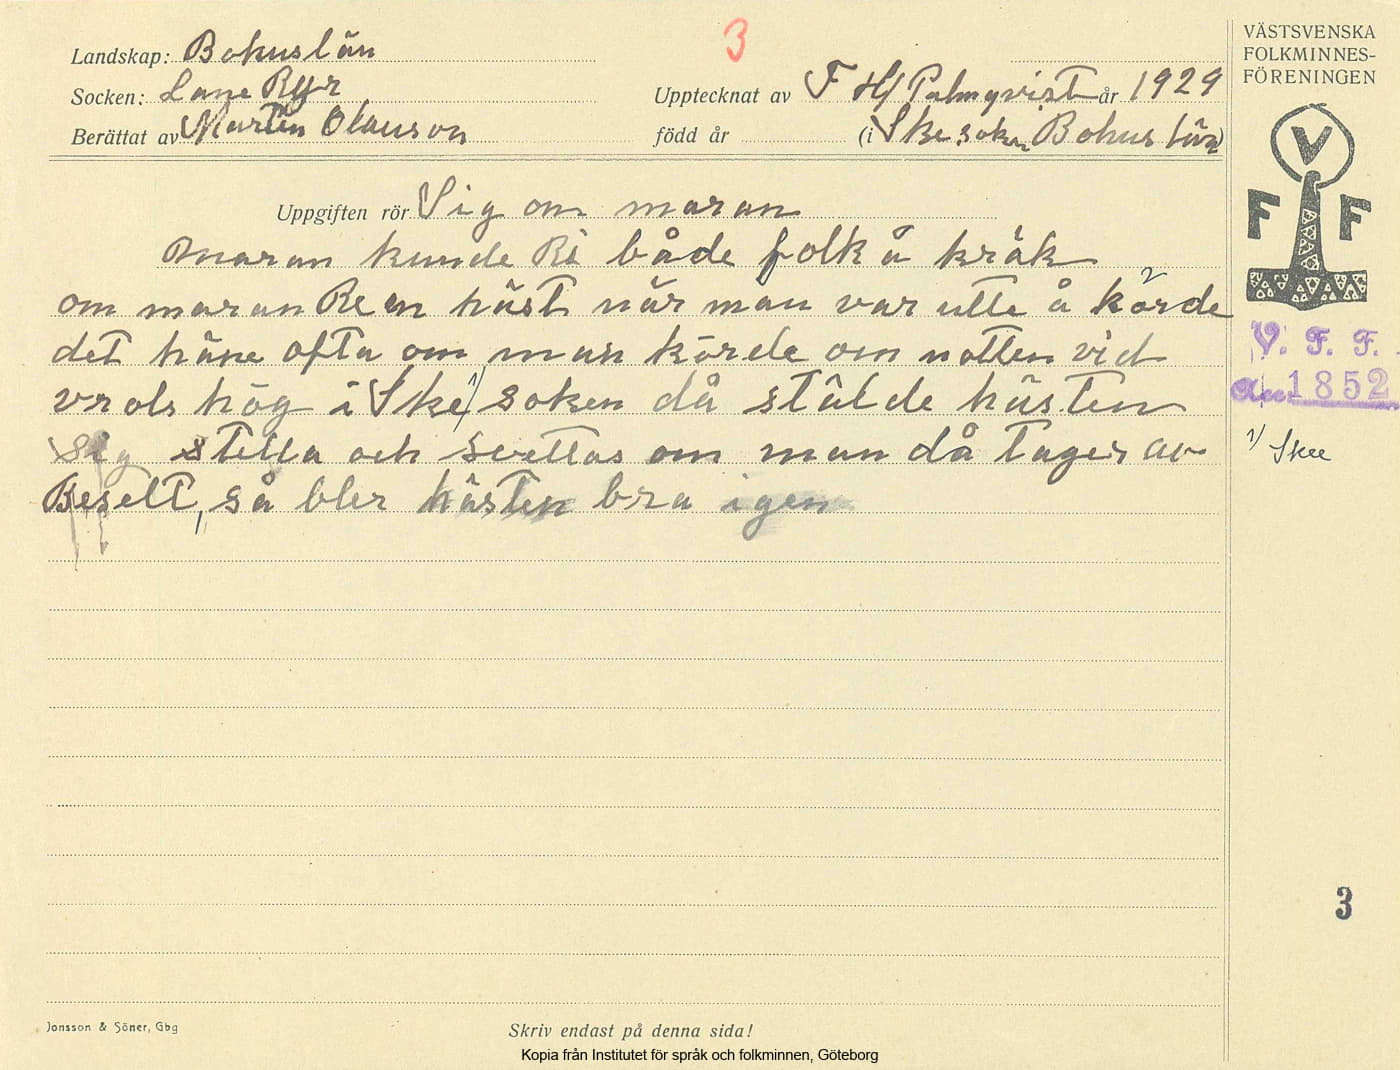 3
VÄSTSVENSKA
FOLKMINNES-
FÖRENINGEN
Landskap: Bohuslän
Socken: Lane Ryr
Upptecknat av F H Palmqvist år 1929
Berättat av Martin Olauson
född år (i Ske soken Bohus län)
V
F F
Uppgiften rör Sig om maran
maran kunde Ri både folk å kräk
om maran Re en häst når man var utte å körde
det häne ofta om man körde om notten vid
vrols hög i Ske 1/ soken då stålde hästen
Sig stilla och svettas om man då tager av
Beselt, så bler hästen bra igen
V. F. F.
1852
1/ Skee
3
Jonsson & Söner, Gbg
Skriv endast på denna sida!
Kopia från Institutet för språk och folkminnen, Göteborg